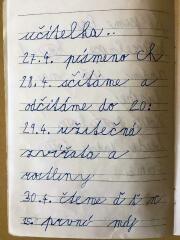 učitelka..
27.4. písmeno Ch
28.4. sčítáme a
odčítáme do 20:
29.4. užitečná
zvířata a
rostliny
30.4. čteme d t n
první máj